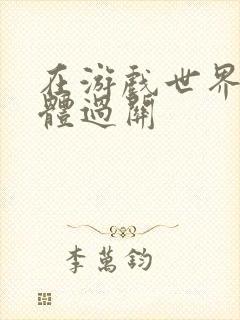 在游戏世界
體過關
李萬鈞